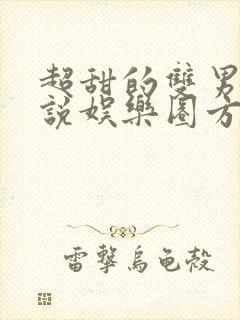 超甜的雙男
說娛樂圈方
雷擊烏龜殼